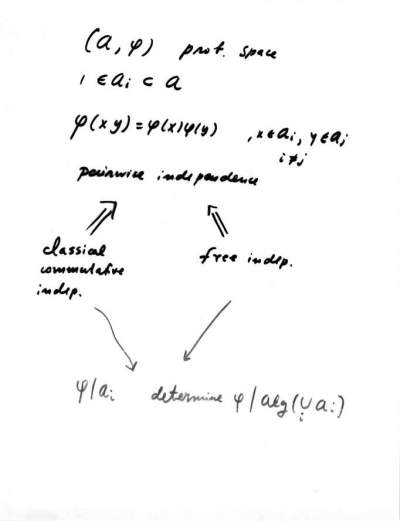 (a, φ) prob. space
1 ∈ a_i ⊂ a
φ(xy) = φ(x)φ(y) , x ∈ a_i, y ∈ a_j
i ≠ j
pairwise independence
classical
commutative
indep.
free indep.
φ|a_i determine φ|alg(∪_i a_i)